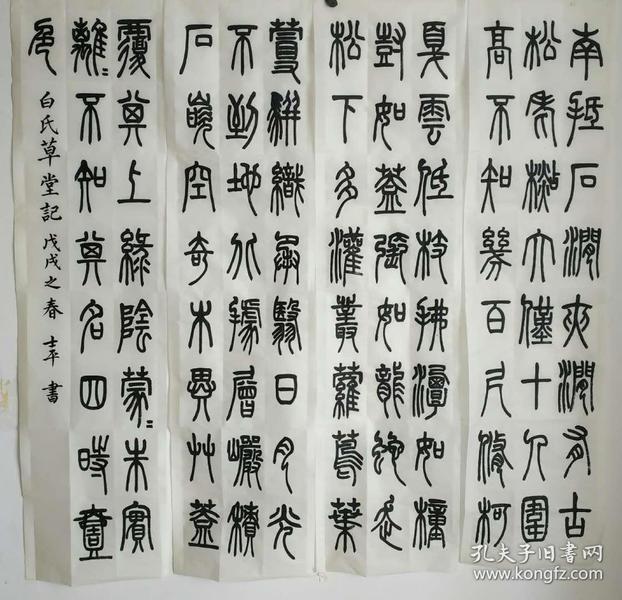 南抵石澗夾澗有古
松老杉大僅十人圍
高不知幾百尺脩柯
戛雲低枝拂潭如幢
豎如蓋張如龍蛇走
松下多灌叢蘿蔦葉
蔓駢織承翳日月光
不到地北據層巖積
石嵌空奇木異艸蓋
覆其上綠陰蒙=朱實
離=不知其名四時壹
色 白氏草堂記 戊戌之春 士平 書
孔夫子旧书网
www.kongfz.com